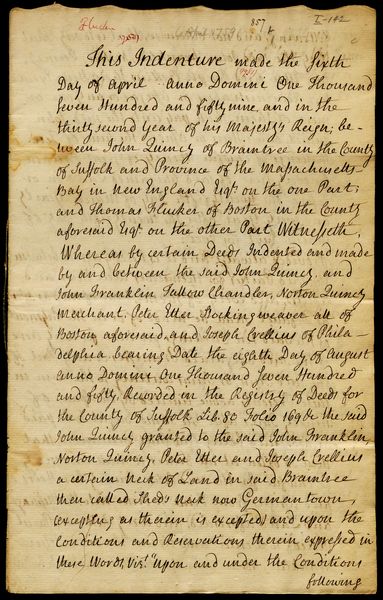 Flucker
1759
6 April 1759
857
I-142
This Indenture made the sixth
Day of April Anno Domini One Thousand
Seven Hundred and fifty nine, and in the
1759
thirty second Year of his Majesty's Reign; be-
tween John Quincy of Braintree in the County
of Suffolk and Province of the Massachusetts
Bay in New England Esqr. on the one Part;
and Thomas Flucker of Boston in the County
aforesaid Esqr. on the other Part Witnesseth,
Whereas by certain Deeds Indented and made
by and between the said John Quincy, and
John Franklin Tallow Chandler, Norton Quincy
Merchant, Peter Etter Stockingweaver all of
Boston aforesaid, and Joseph Crellius of Phila-
delphia bearing Date the eighth Day of August
Anno Domini One Thousand Seven Hundred
and fifty, Recorded in the Registry of Deeds for
the County of Suffolk Lib. 80 Folio 169 &c the said
John Quincy granted to the said John Franklin,
Norton Quincy, Peter Etter and Joseph Crellius
a certain Neck of Land in said Braintree
then called Sheds Neck now Germantown,
(excepting as therein is excepted) and upon the
Conditions and Reservations therein expressed in
these Words, Vizt. "upon and under the Conditions
following